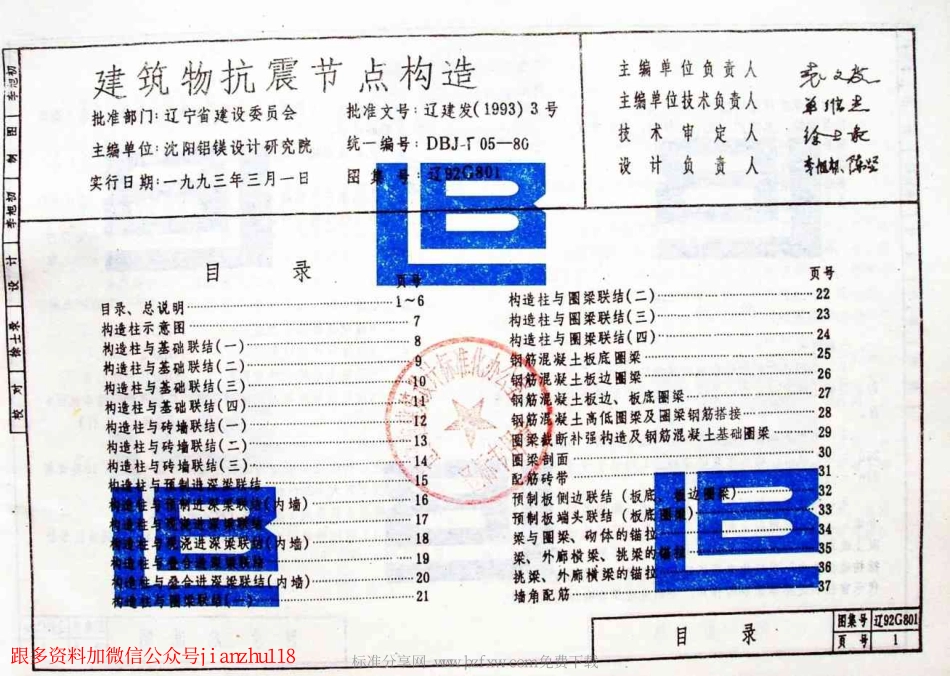 建筑物抗震节点构造
批准部门:辽宁省建设委员会
批准文号:辽建发(1993)3号
主编单位:沈阳铝镁设计研究院
统一编号:DBJT05—86
实行日期:一九九三年三月一日
图集号:辽92G801
主编单位负责人
主编单位技术负责人
技术审定人
设计负责人
目录
页号
目录、总说明 1~6
构造柱示意图 7
构造柱与基础联结(一) 8
构造柱与基础联结(二) 9
构造柱与基础联结(三) 10
构造柱与基础联结(四) 11
构造柱与砖墙联结(一) 12
构造柱与砖墙联结(二) 13
构造柱与砖墙联结(三) 14
构造柱与预制进深梁联结 15
构造柱与预制进深梁联结(内墙) 16
构造柱与现浇进深梁联结 17
构造柱与现浇进深梁联结(内墙) 18
构造柱与叠合进深梁联结 19
构造柱与叠合进深梁联结(内墙) 20
构造柱与圈梁联结(一) 21
页号
构造柱与圈梁联结(二) 22
构造柱与圈梁联结(三) 23
构造柱与圈梁联结(四) 24
钢筋混凝土板底圈梁 25
钢筋混凝土板边圈梁 26
钢筋混凝土板边、板底圈梁 27
钢筋混凝土高低圈梁及圈梁钢筋搭接 28
圈梁截断补强构造及钢筋混凝土基础圈梁 29
圈梁剖面 30
配筋砖带 31
预制板侧边联结(板底、板边圈梁) 32
预制板端头联结(板底圈梁) 33
梁与圈梁、砌体的锚拉 34
梁、外廊横梁、挑梁的锚拉 35
挑梁、外廊横梁的锚拉 36
墙角配筋 37
校对 徐士录 设计 李旭初 制图 李旭初
目录
图集号 辽92G801
页号 1
跟多资料加微信公众号jianzhu118
标准分享网 www.bzfxw.com免费下载